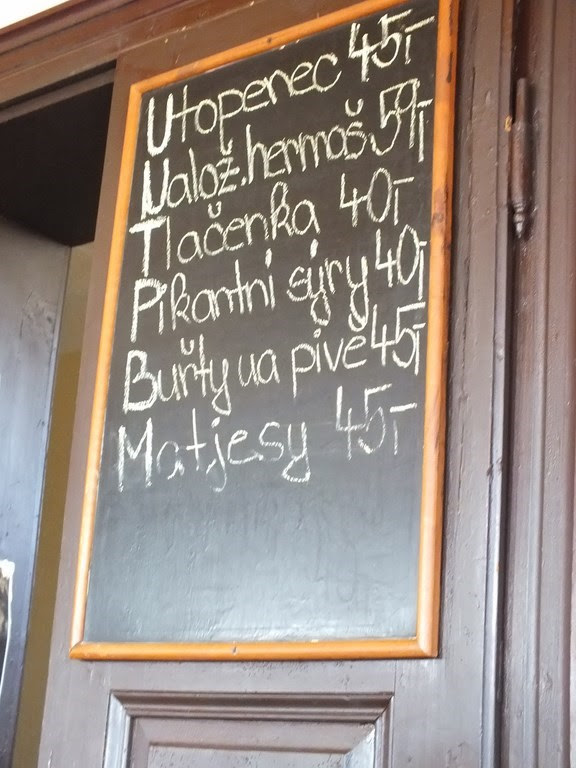 Utopenec 45,-
Nalož. hermoš 59,-
Tlačenka 40,-
Pikantni sýry 40,-
Buřty na pivě 45,-
Matjesy 45,-